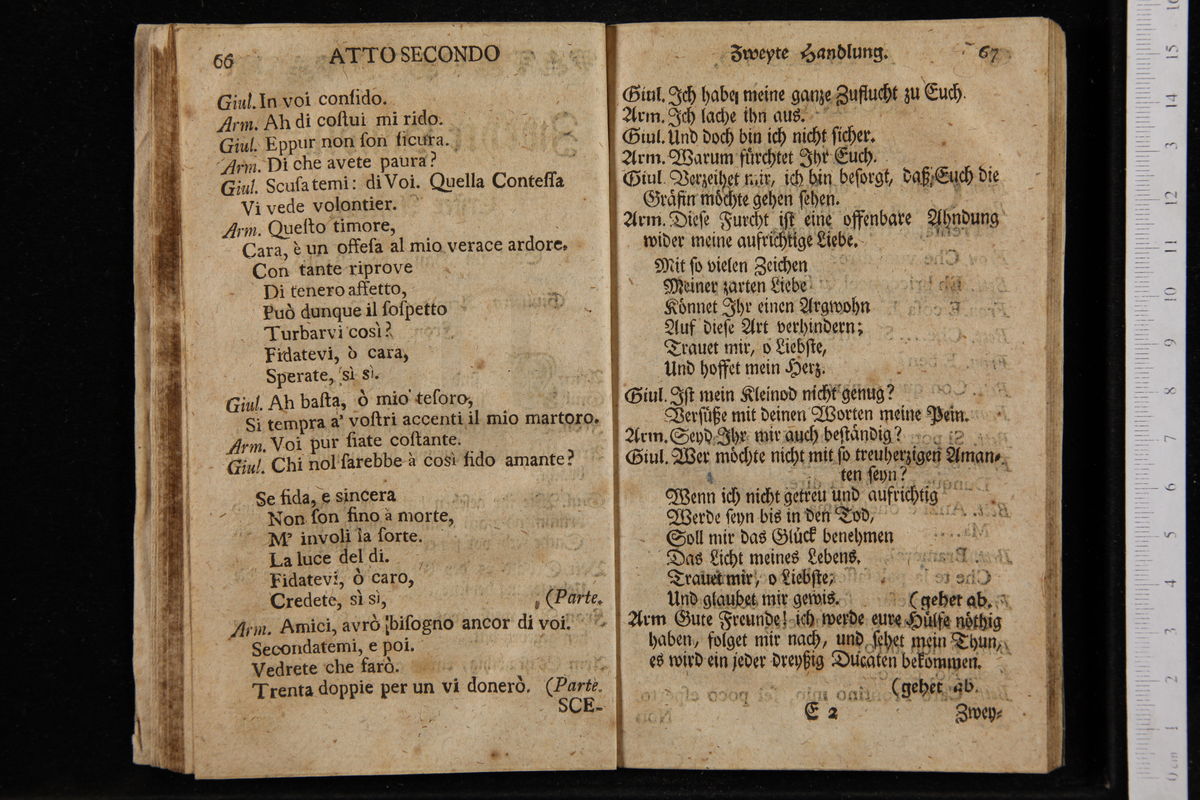 66 ATTO SECONDO
Giul. In voi confido.
Arm. Ah di coſtui mi rido.
Giul. Eppur non ſon ſicura.
Arm. Di che avete paura?
Giul. Scuſatemi: di Voi. Quella Conteſſa
Vi vede volontier.
Arm. Queſto timore,
Cara, è un offeſa al mio verace ardore.
Con tante riprove
Di tenero affetto,
Può dunque il ſoſpetto
Turbarvi così?
Fidatevi, ò cara,
Sperate, sì sì.
Giul. Ah baſta, ò mio teſoro,
Si tempra a' voſtri accenti il mio martoro.
Arm. Voi pur ſiate coſtante.
Giul. Chi nol ſarebbe à così fido amante?
Se fida, e sincera
Non ſon fino à morte,
M' involi la ſorte.
La luce del di.
Fidatevi, ò caro,
Credete, sì si, (Parte.
Arm. Amici, avrò biſogno ancor di voi.
Secondatemi, e poi.
Vedrete che farò.
Trenta doppie per un vi donerò. (Parte.
SCE-
Zweyte Handlung. 67
Giul. Ich habe meine ganze Zuflucht zu Euch.
Arm. Ich lache ihn aus.
Giul. Und doch bin ich nicht ſicher.
Arm. Warum fürchtet Ihr Euch.
Giul. Verzeihet mir, ich bin beſorgt, daß Euch die
Gräfin möchte gehen ſehen.
Arm. Dieſe Furcht iſt eine offenbare Ahndung
wider meine aufrichtige Liebe.
Mit ſo vielen Zeichen
Meiner zarten Liebe
Könnet Ihr einen Argwohn
Auf dieſe Art verhindern;
Trauet mir, o Liebſte,
Und hoffet mein Herz.
Giul. Iſt mein Kleinod nicht genug?
Verſüße mit deinen Worten meine Pein.
Arm. Seyd Ihr mir auch beſtändig?
Giul. Wer möchte nicht mit ſo treuherzigen Aman-
ten ſeyn?
Wenn ich nicht getreu und aufrichtig
Werde ſeyn bis in den Tod,
Soll mir das Glück benehmen
Das Licht meines Lebens.
Trauet mir, o Liebſte,
Und glaubet mir gewis. (gehet ab.
Arm Gute Freunde! ich werde eure Hülfe nöthig
haben, folget mir nach, und ſehet mein Thun,
es wird ein jeder dreyßig Ducaten bekommen.
(gehet ab.
E 2 Zwey-